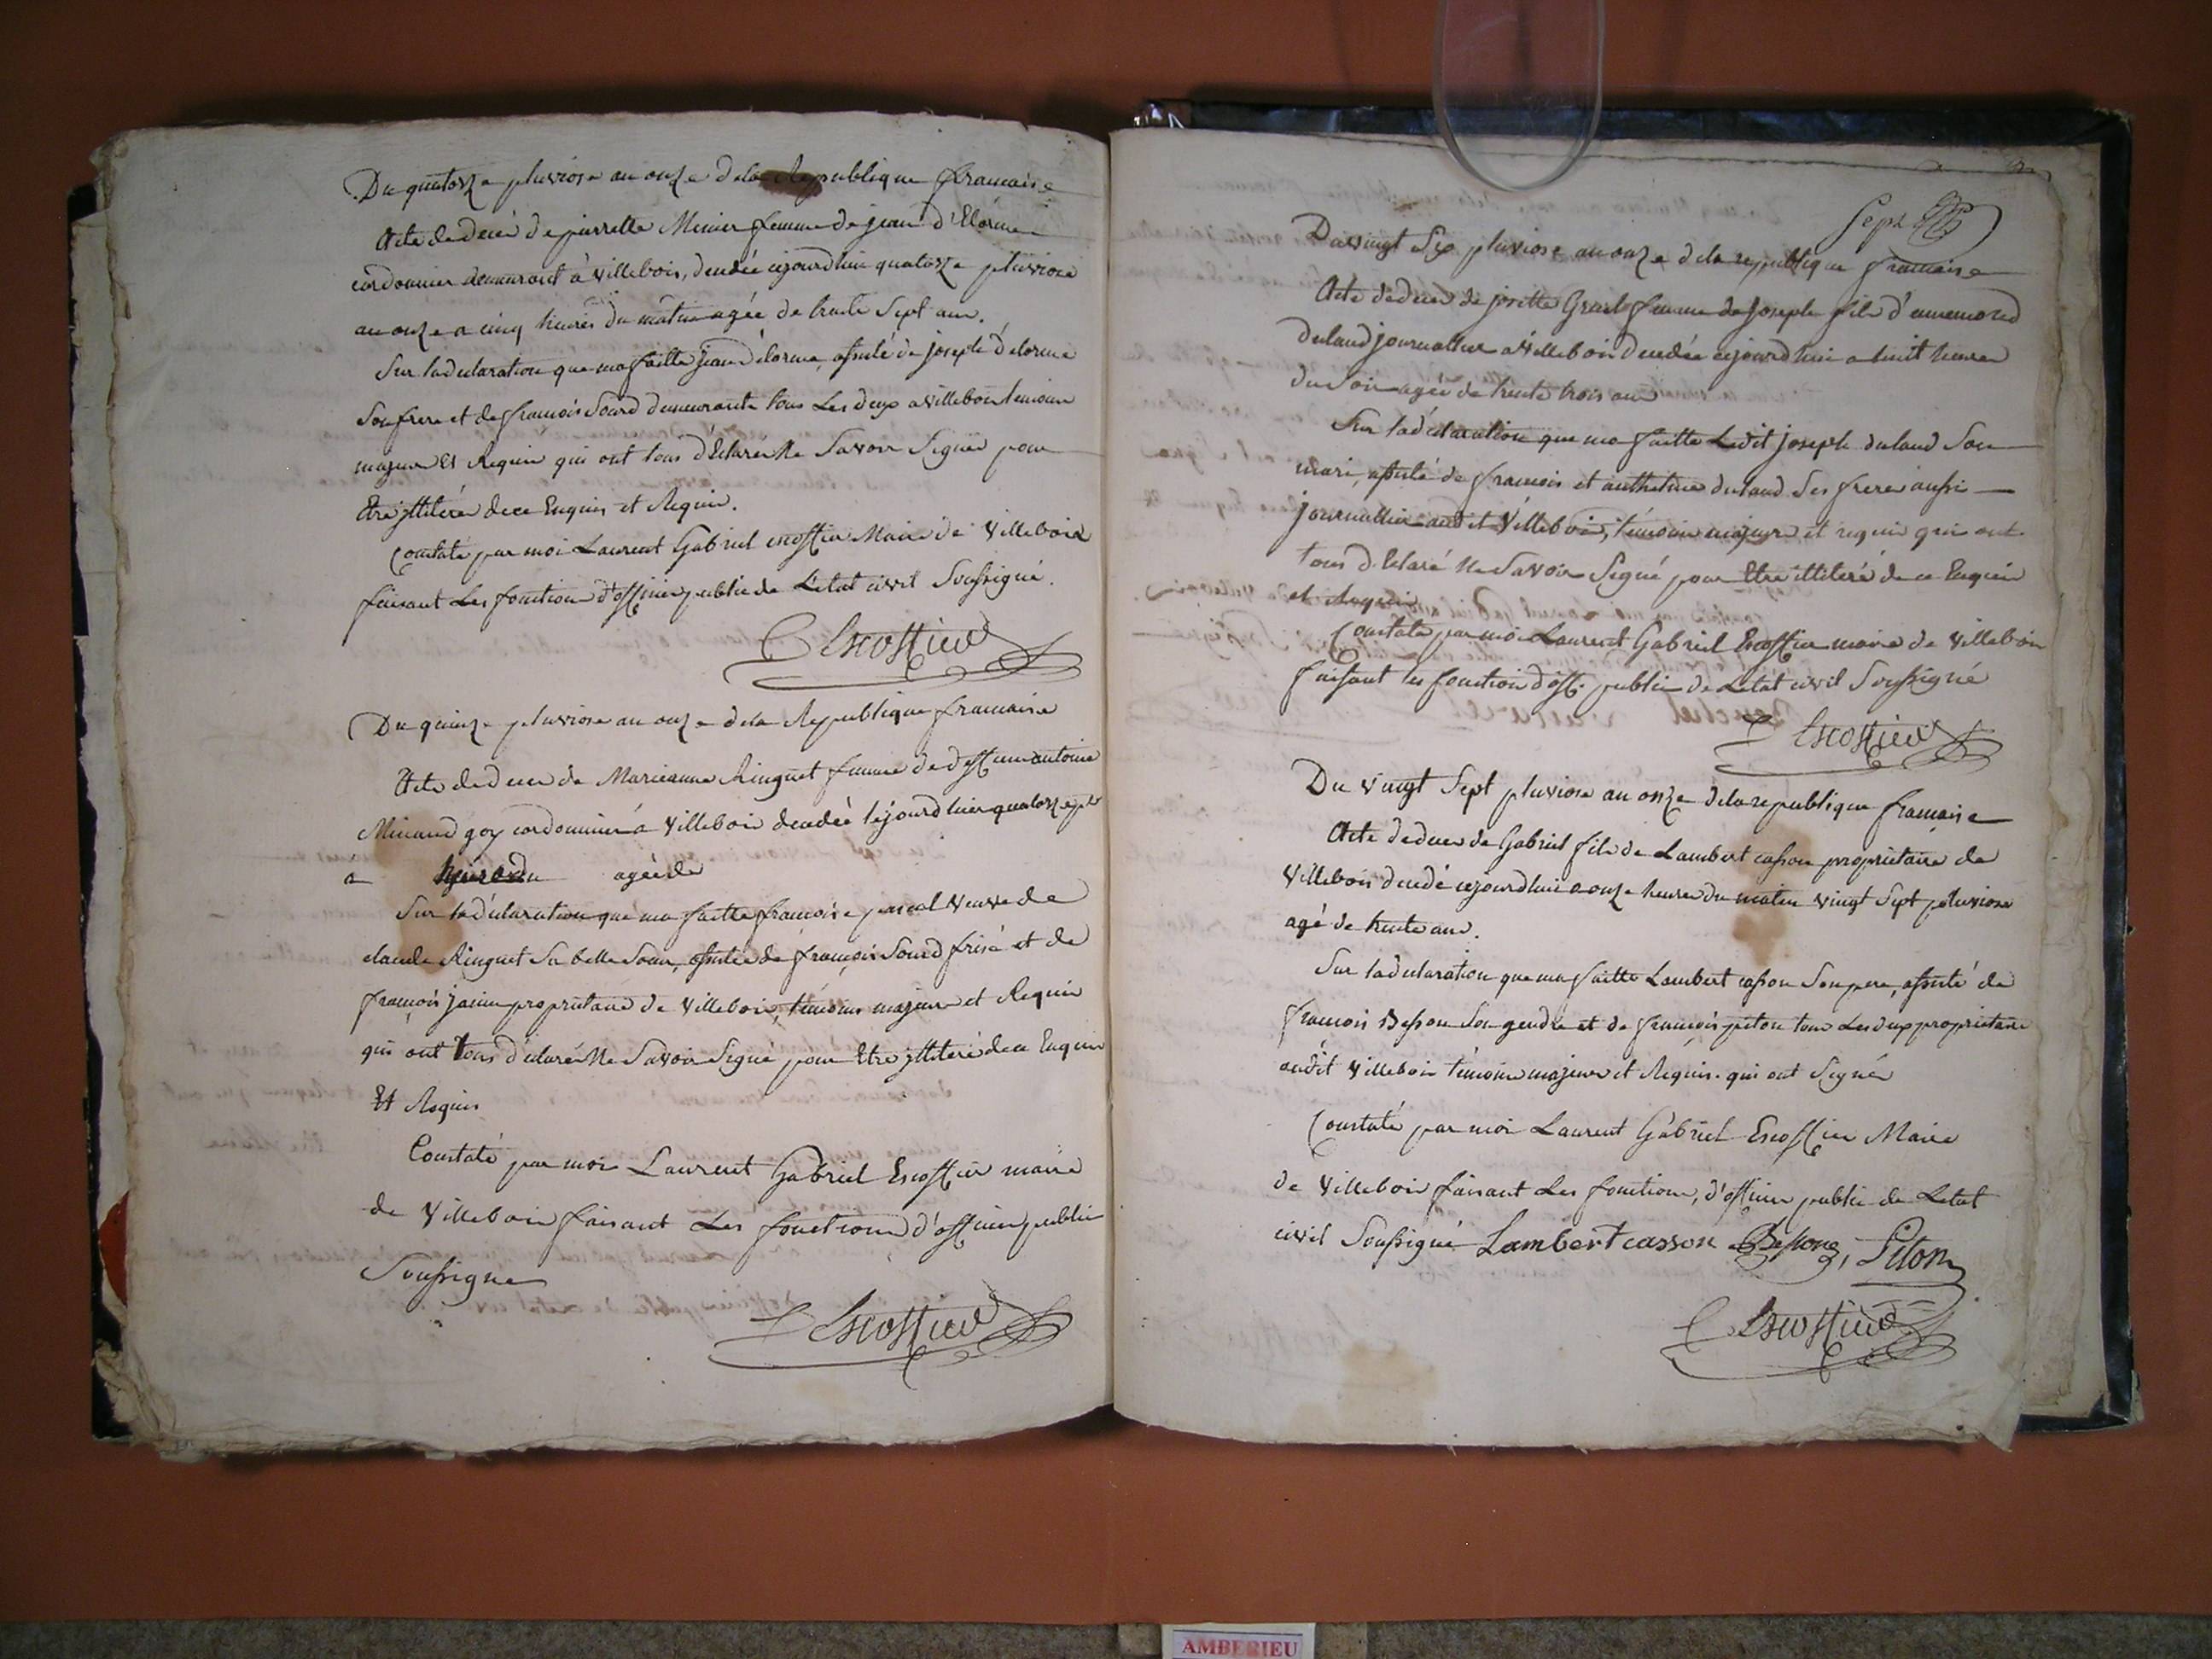 Du quatorze pluviose an onze dela Republique francaise
Acte dedecès de pierrette Minier femme de jean d'Elorme
cordonnier demeurant à villebois, decedée cejourdhui quatorze pluviose
an onze a cinq heures du matin agée de trente Sept ans.
Sur ladeclaration que ma faitte jean d'elorme, assisté de joseph d'elorme
Son frere et de françois Sourd demeurants tous Les deux a villebois temoins
majeurs Et Requis qui ont tous d'Eclaré Ne Savoir Signer pour
être jlliterés dece Enquis et Requis.
Constaté par moi Laurent Gabriel escoffier Maire de Villebois
faisant Les fonctions d'officier public de L'etat civil Soussigné.
Escoffier
Du quinze pluviose an onze dela Republique francaise
Acte dedeces de Marianne Ringuet femme de deffunt antoine
Minand goy cordonnier à Villebois decedée lejourdhier quatorze
a heures du agée de
Sur ladéclaration que ma faitte françoise pascal veuve de
claude Ringuet Sa belle Soeur, assistée de françois Sourd frisé et de
françois janin proprietaire de Villebois, témoins majeurs et Requis
qui ont tous déclaré Ne Savoir Signé pour Etre jlliteré dece Enquis
Et Requis
Constaté par moi Laurent Gabriel Escoffier maire
de Villebois faisant Les fonctions d'officier public
Soussigne
Escoffier
Sept
Du vingt Six pluviose an onze dela republique francaise
Acte dedeces de josette femme de joseph fils d'ennemond
duland journallier a Villebois decedée cejourdhui a huit heures
du Soir agée de trente trois ans
Sur ladéclaration que ma faitte Ledit joseph duland Son
mari, assisté de françois et anthelme duland Ses freres aussi
journallier audit Villebois, témoins majeurs et requis qui ont
tous d'Eclaré Ne Savoir Signé pour Etre illiteré de ce Enquis
et Requis
Constaté par moi Laurent Gabriel Escoffier maire de Villebois
faisant les fonction d'off. public de Letat civil Soussigné
Escoffier
Du vingt Sept pluviose an onze dela republique francaise
Acte dedeces de Gabriel fils de Lambert casson proprietaire de
Villebois decedé cejourdhui a onze heures du matin vingt Sept pluviose
agé de trente ans.
Sur ladeclaration que ma faitte Lambert casson Son pere, assisté de
françois Besson Son gendre et de françois piton tous Les deux proprietaire
audit Villebois témoins majeurs et Requis. qui ont Signés
Constaté par moi Laurent Gabriel Escoffier Maire
de Villebois faisant Les fonctions, d'officier public de Letat
civil Soussigné Lambert casson Besson, Piton
Escoffier
AMBERIEU